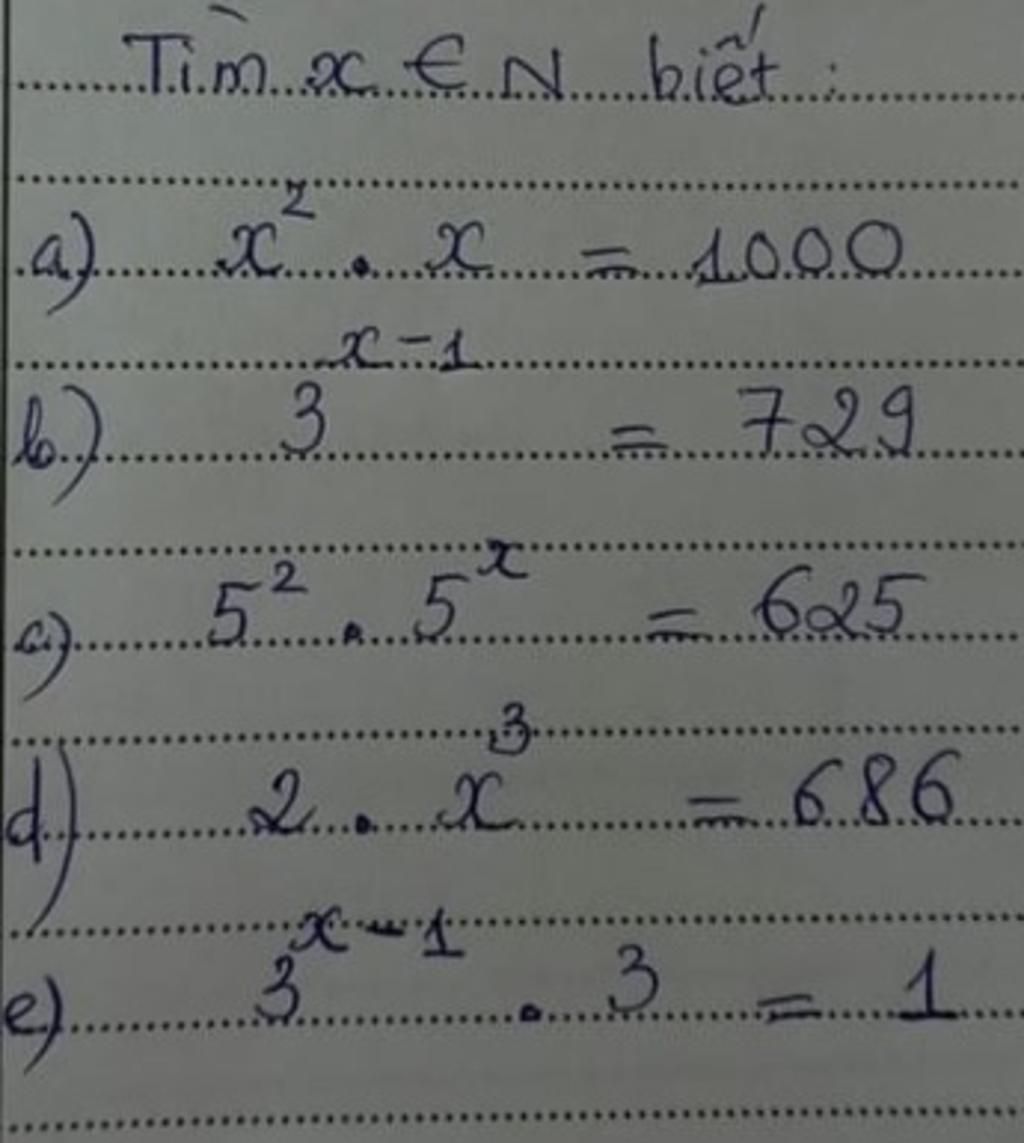 Tìm x ∈ N biết :
a) x² . x = 1000
b) 3ˣ⁻¹ = 729
c) 5² . 5ˣ = 625
d) 2 . x³ = 686
e) 3ˣ⁻¹ . 3 = 1